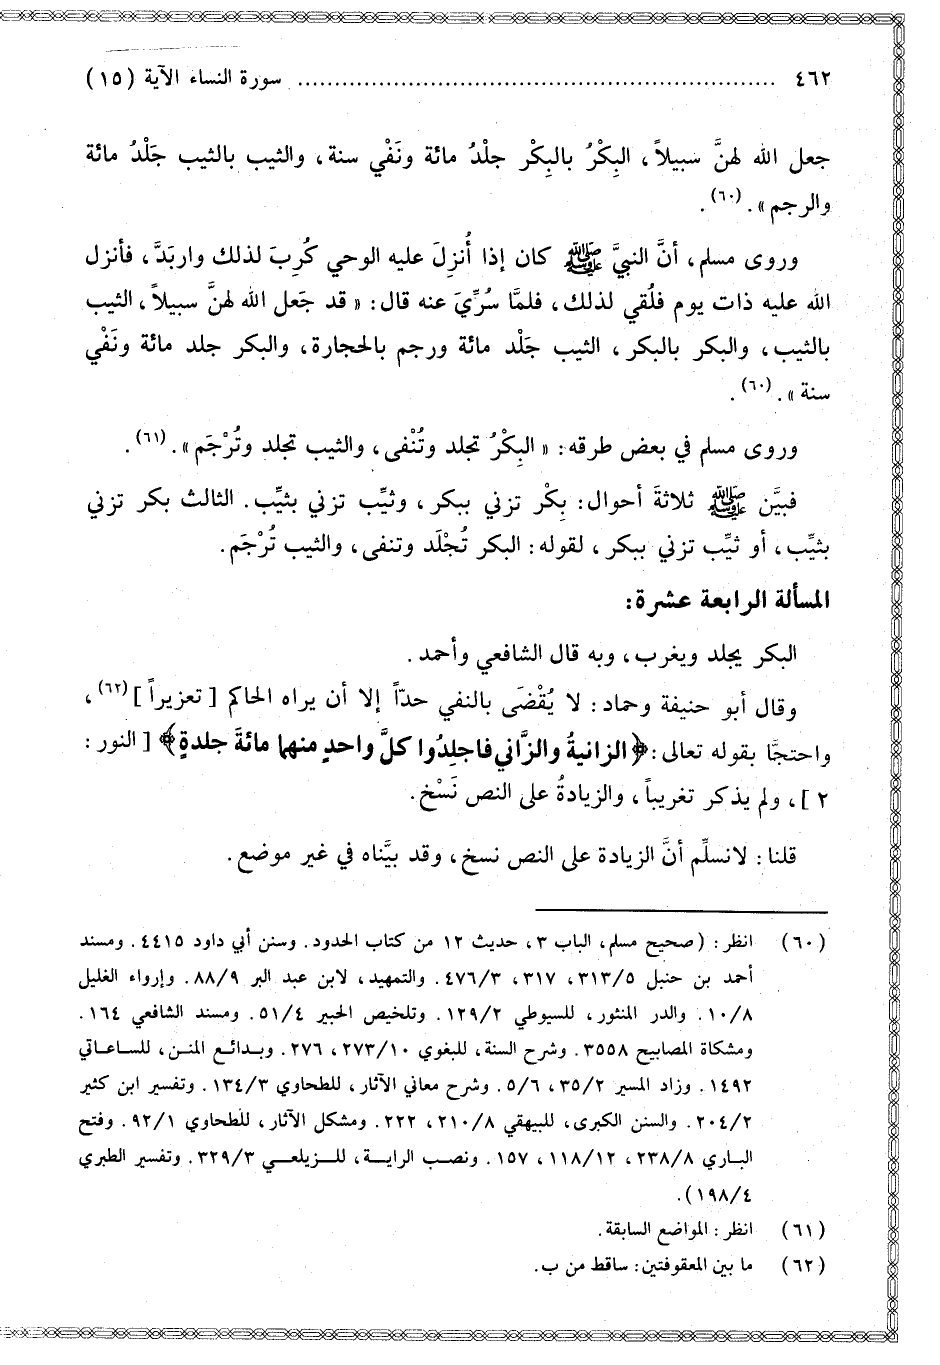 ٤٦٢ ................................................................ سورة النساء الآية (١٥)
جعل الله لهنَّ سبيلاً، البِكْرُ بالبِكْر جلْدُ مائة ونَفْي سنة، والثيب بالثيب جَلْدُ مائة
والرجم». (٦٠).
وروى مسلم، أنَّ النبيَّ ﷺ كان إذا أُنزِلَ عليه الوحي كُرِبَ لذلك واربَدَّ، فأنزل
الله عليه ذات يوم فلُقي لذلك، فلمَّا سُرِّيَ عنه قال: «قد جَعل الله لهنَّ سبيلاً، الثيب
بالثيب، والبكر بالبكر، الثيب جَلْد مائة ورجم بالحجارة، والبكر جلد مائة ونَفْي
سنة». (٦٠).
وروى مسلم في بعض طرقه: «البِكْرُ تجلد وتُنْفى، والثيب تجلد وتُرْجَم». (٦١).
فبيَّن ﷺ ثلاثةَ أحوال: بِكْر تزني ببكر، وثيِّب تزني بثيِّب. الثالث بكر تزني
بثيِّب، أو ثيِّب تزني ببكر، لقوله: البكر تُجْلَد وتنفى، والثيب تُرْجَم.
المسألة الرابعة عشرة:
البكر يجلد ويغرب، وبه قال الشافعي وأحمد.
وقال أبو حنيفة وحماد: لا يُقْضَى بالنفي حدّاً إلا أن يراه الحاكم [تعزيراً] (٦٢)،
واحتجَّا بقوله تعالى: ﴿الزانيةُ والزَّاني فاجلِدُوا كلَّ واحدٍ منهما مائةَ جلدةٍ﴾ [النور:
٢]، ولم يذكر تغريباً، والزيادةُ على النص نَسْخ.
قلنا: لانسلِّم أنَّ الزيادة على النص نسخ، وقد بيَّناه في غير موضع.
(٦٠) انظر: (صحيح مسلم، الباب ٣، حديث ١٢ من كتاب الحدود. وسنن أبي داود ٤٤١٥. ومسند
أحمد بن حنبل ٣١٣/٥، ٣١٧، ٤٧٦/٣. والتمهيد، لابن عبد البر ٨٨/٩. وإرواء الغليل
١٠/٨. والدر المنثور، للسيوطي ١٢٩/٢. وتلخيص الحبير ٥١/٤. ومسند الشافعي ١٦٤.
ومشكاة المصابيح ٣٥٥٨. وشرح السنة، للبغوي ٢٧٣/١٠، ٢٧٦. وبدائع المنن، للساعاتي
١٤٩٢. وزاد المسير ٣٥/٢، ٥/٦. وشرح معاني الآثار، للطحاوي ١٣٤/٣. وتفسير ابن كثير
٢٠٤/٢. والسنن الكبرى، للبيهقي ٢١٠/٨، ٢٢٢. ومشكل الآثار، للطحاوي ٩٢/١. وفتح
الباري ٢٣٨/٨، ١١٨/١٢، ١٥٧. ونصب الراية، للزيلعي ٣٢٩/٣. وتفسير الطبري
١٩٨/٤).
(٦١) انظر: المواضع السابقة.
(٦٢) ما بين المعقوفتين: ساقط من ب.